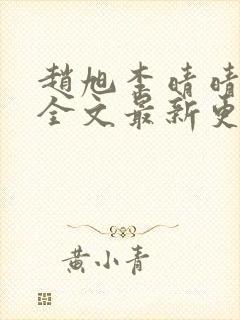 趙旭李晴晴
全文最新更
黄小青